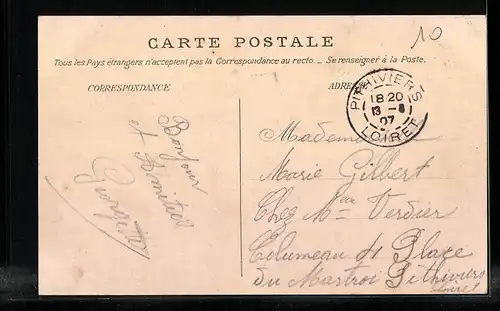 10
CARTE POSTALE
Tous les Pays étrangers n'acceptent pas la Correspondance au recto. – Se renseigner à la Poste.
CORRESPONDANCE
ADRE
PITHIVIERS
18 20
13 - 8
07
LOIRET
Bonjour
et Amitiés
Georgette
Marie Gilbert
Chez Mme Verdier
Place
du Martroi Pithiviers
Loiret